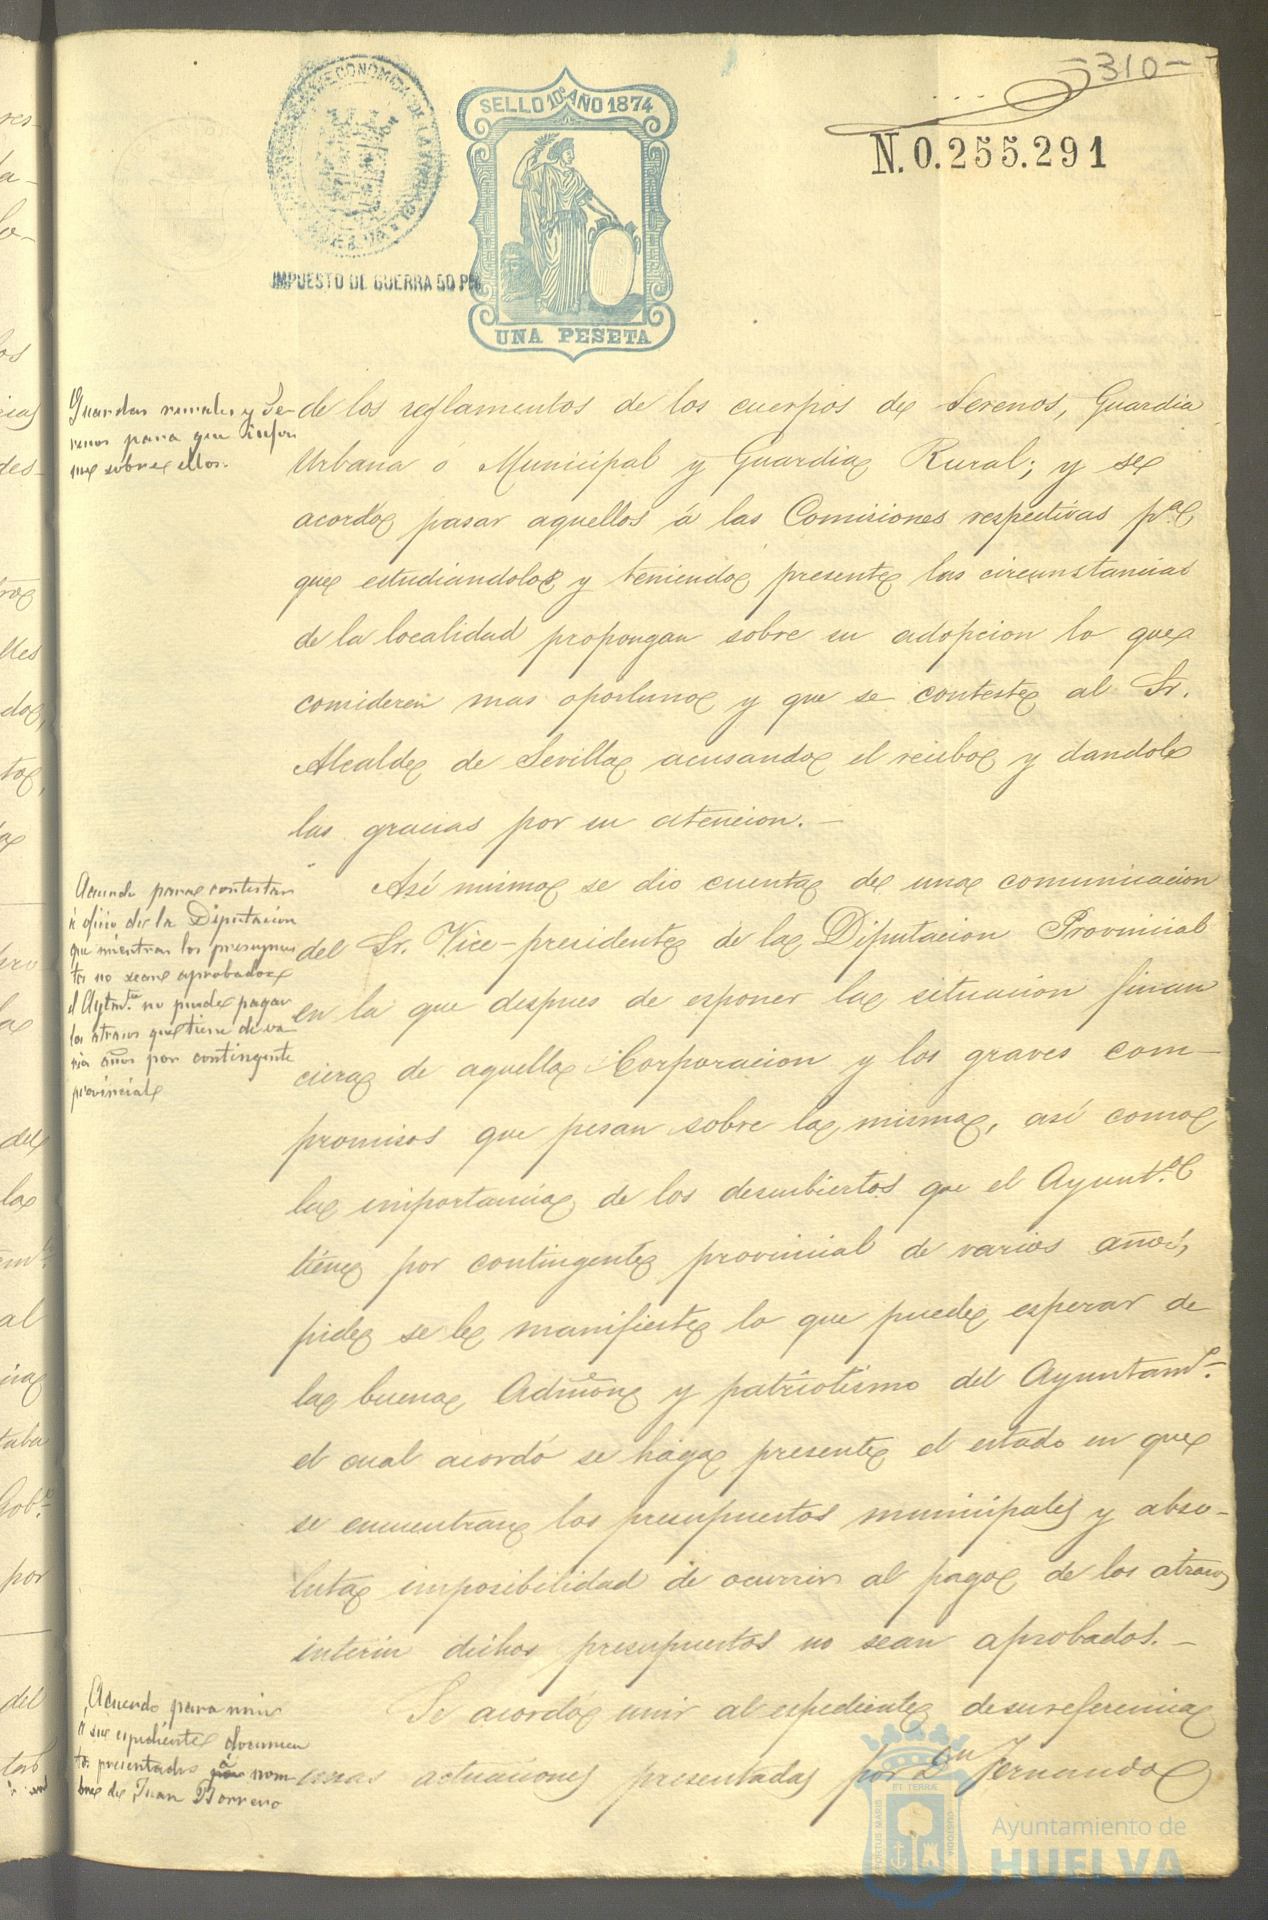 -310-
N. 0.255.291
SELLO 10º AÑO 1874
IMPUESTO DE GUERRA 50 P%
UNA PESETA
Guardas rurales y Se-
renos para que infor
me sobre ellos.
de los reglamentos de los cuerpos de Serenos, Guardia
Urbana ó Municipal y Guardia Rural; y se
acordó pasar aquellos á las Comisiones respectivas pª
que estudiandolos y teniendo presente las circunstancias
de la localidad propongan sobre su adopcion lo que
consideren mas oportuno y que se conteste al Sr.
Alcalde de Sevilla acusando el recibo y dandole
las gracias por su atencion.-
Acuerdo para contestar
á oficio de la Diputación
que mientras los presupues
tos no sean aprobados
el Aytmto. no puede pagar
los atrasos que tiene de va
rios años por contingente
provincial
Así mismo se dio cuenta de una comunicacion
del Sr. Vice-presidente de la Diputacion Provincial
en la que despues de esponer la situacion finan
ciera de aquella Corporacion y los graves com-
promisos que pesan sobre la misma, así como
la importancia de los descubiertos que el Ayuntº
tiene por contingente provincial de varios años,
pide se le manifieste lo que puede esperar de
la buena Admõn y patriotismo del Ayuntamº.
el cual acordó se haga presente el estado en que
se encuentran los presupuestos municipales y abso-
luta imposibilidad de ocurrir al pago de los atrasos
interin dichos presupuestos no sean aprobados.-
Acuerdo para unir
á su espediente documen
tos presentados á nom
bre de Juan Borrero
Se acordó unir al espediente de su referencia
unas actuaciones presentadas por Dn Fernando
PORTUS MARIS
ET TERRÆ
CUSTODIA
Ayuntamiento de
HUELVA